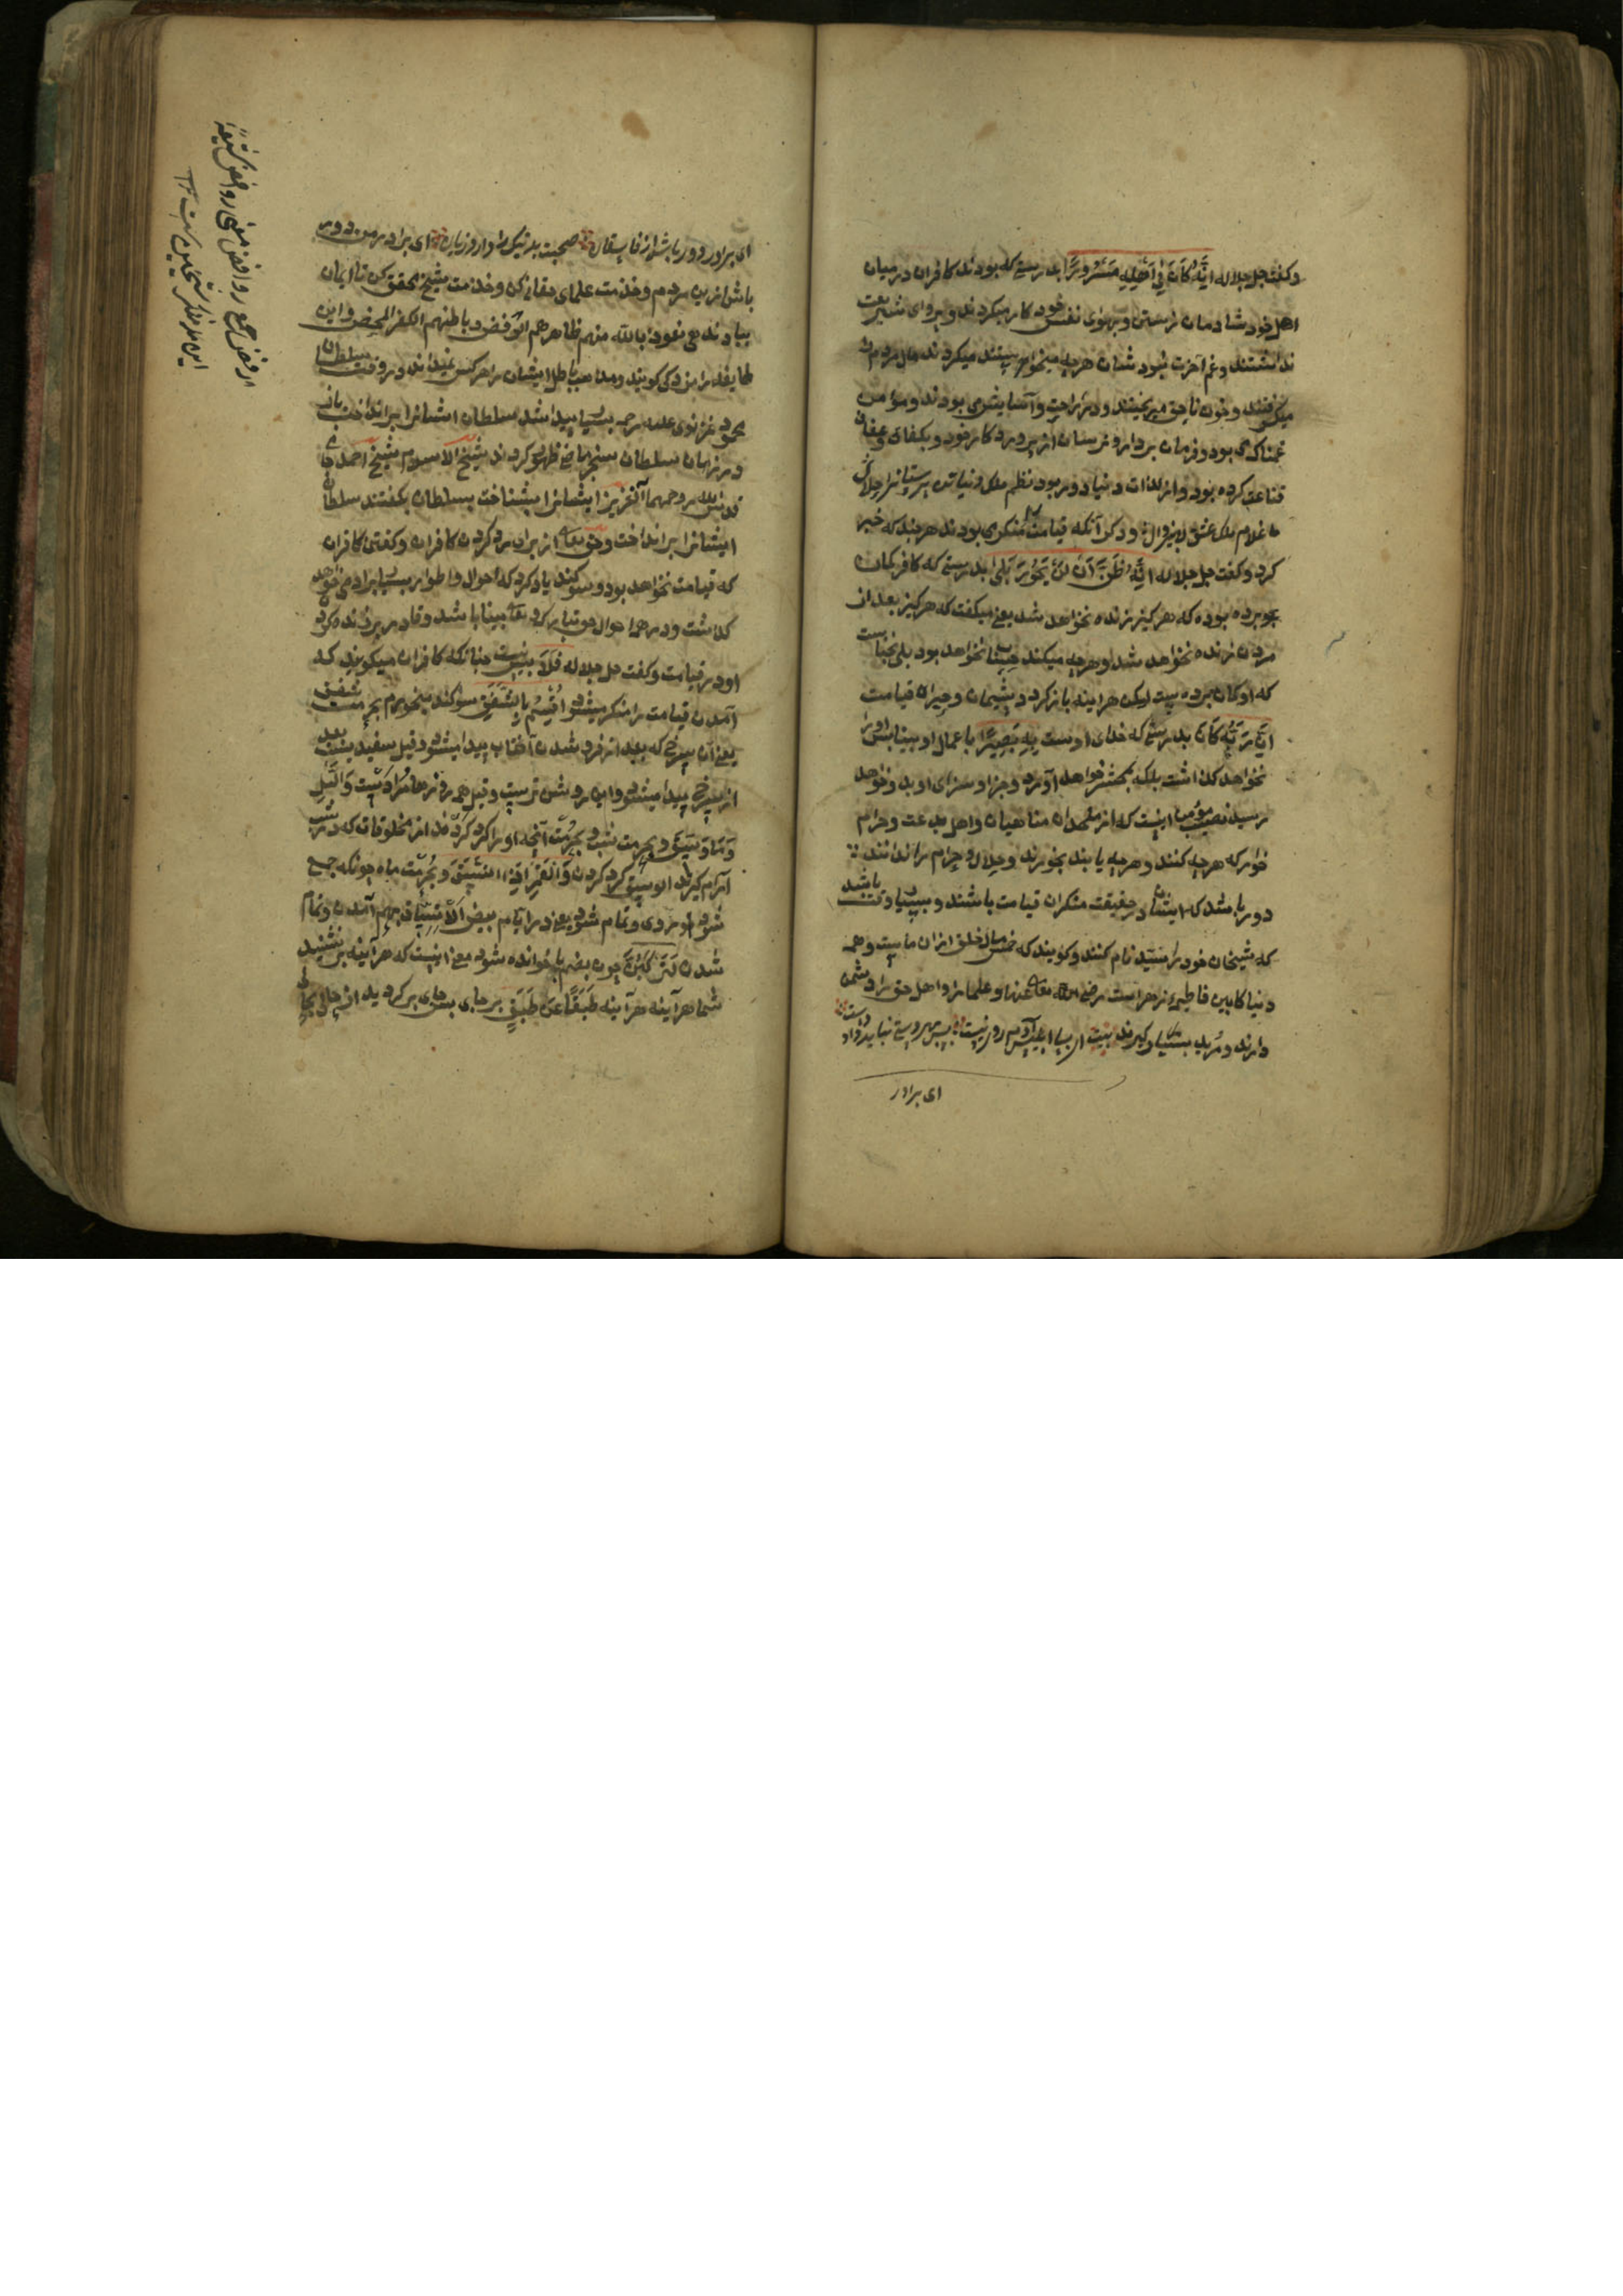 و گفت جل جلاله اِنَّهُ كَانَ فِي اَهْلِهِ مَسْرُورًا بدرستی که بودند کافران در میان
اهل خود شادمان زیستن و بهوای نفس خود کار میکردند و پروای شریعت
نداشتند و غم آخرت نبود شان هر چه میپسندیدند میکردند مال مردم
میگرفتند و خون ناحق میریختند و در راحت و آسایش بودند و مؤمن
غمناک بود و فرمان بردار و ترسان از پرورد کار خود و بکفای و عفاف
قناعت کرده بود و از لذات دنیا دور بود نظم ملک دنیا تن پرستانرا حلال
ما غلام ملک عشق لایزوال و دکر آنکه قیامت را منکر می بودند هر چند که خبر
کرد و گفت جل جلاله اِنَّهُ ظَنَّ اَنْ لَنْ يَحُورَ بَلَى بدرستی که کافر گمان
برده بوده که هر کیز زنده نخواهد شد یعنی میکفت که هر کیز بعد از
مردن زنده نخواهد شد و هر چه میکند حساب نخواهد بود بلی نچنانست
که او گمان برده است لیکن هراینه باز کردد پشیمان و حیران قیامت
اِنَّ رَبَّهُ كَانَ بدرستی که خدای اوست بِهِ بَصِيرًا باعمال او بینا پس او را
نخواهد گذاشت بلکه بمحشر خواهد آورد و جزا و سزای او بدو خواهد
رسید نصیب مؤمنان اینست که از ملحدان مناهیان و اهل بدعت و حرام
خوار که هر چه کنند و هر چه یابند بخورند و حلال و حرام را ندانند
دور باشد که ایشان در حقیقت منکران قیامت باشند و بسیار وقت باشد
که شیخان خود را سید نام کنند و گویند که خمس مال خلق از آن ماست و همه
دنیا کابین فاطمه زهراست رضی الله تعالی عنها و علما را و اهل حق را دشمن
دارند و مرید بسیار گیرند بیت ای بسا ابلیس آدم روی نیست پس بهر دستی نباید داد دست
ای برادر
ای برادر دور باش از فاسقان صحبت بد نیک را دارد زیان ای برادر من دور
باش از این مردم و خدمت علمای حقانی کن و خدمت شیخ محقق کن تا ایمان
بباد ندهی نعوذ بالله منهم ظاهرهم الرفض و باطنهم الکفر المحض و این
طایفه را مزدکی گویند و مذهب باطل ایشان را هر کس نمیداند در وقت سلطان
محمود غزنوی علیه رحمه بسیار پیدا شد سلطان ایشانرا برانداخت باز
در زمان سلطان سنجر ماضی ظهور کردند شیخ الاسلام شیخ احمد جامی
قدس الله روحهما آنعزیز ایشانرا بشناخت بسلطان بگفتند سلطان
ایشانرا برانداخت و حق تعالی از برای رد کردن کافران و گفتن کافران
که قیامت نخواهد بود و سوگند یاد کرد که احوال و اطوار بسیار آدمی خواهد
گذاشت و در همه احوال حق تبارک و تعالی بینا باشد و قادر بر زنده کردن
او در قیامت و گفت جل جلاله فَلَا پس نیست چنانکه کافران میگویند که
آمدن قیامت را منکر میشوند اُقْسِمُ بِالشَّفَقِ سوگند میخورم بحرمت شفق
یعنی آن سرخی که بعد از فرو شدن آفتاب پیدا میشود و قیل سفید بیست بعد
از سرخی پیدا میشود و این روشن ترست و قیل همه روزها مرادست وَاللَّيْلِ
وَمَا وَسَقَ و بحرمت شب و بحرمت آنچه او را گرد کرده اند از مخلوقات که در شب
آرام گیرند الوسق گرد کردن وَالْقَمَرِ اِذَا اتَّسَقَ و بحرمت ماه چونکه جمع
شود نور وی و تمام شود یعنی در ایام بیض الاتساق بهم آمدن و تمام
شدن لَتَرْكَبُنَّ چون بضم با خوانده شود معنی اینست که هر آینه بر نشنید
شما هر آینه هر آینه طَبَقًا عَنْ طَبَقٍ بر جای بعد جای بر گردید از حال بحال